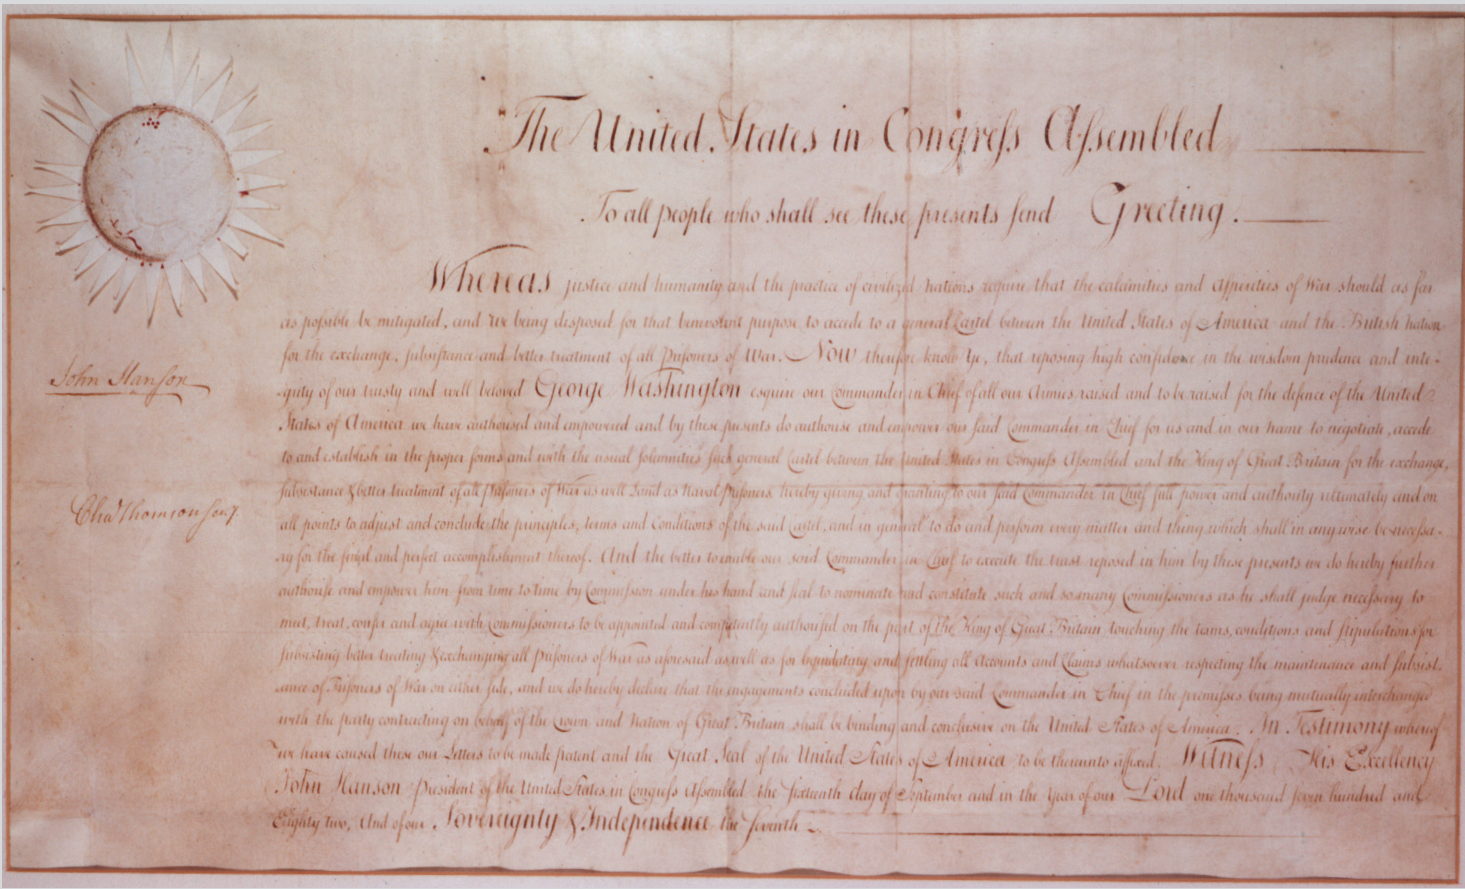 The United States in Congress Assembled
To all people who shall see these presents send Greeting.
Whereas justice and humanity and the practice of civilized nations require that the calamities and asperities of War should as far
as possible be mitigated, and we being disposed for that benevolent purpose to accede to a general Cartel between the United States of America and the British nation
for the exchange, subsistance and better treatment of all Prisoners of War. Now therefore know Ye, that reposing high confidence in the wisdom prudence and inte-
John Hanson
grity of our trusty and well beloved George Washington esquire our Commander in Chief of all our Armies raised and to be raised for the defence of the United
States of America we have authorised and empowered and by these presents do authorise and empower our said Commander in Chief for us and in our name to negotiate, accede
to and establish in the proper forms and with the usual solemnities such general Cartel between the United States in Congress Assembled and the King of Great Britain for the exchange,
subsistance & better treatment of all prisoners of War as well Land as Naval Prisoners, hereby giving and granting to our said Commander in Chief full power and authority ultimately and on
Cha Thomson secy.
all points to adjust and conclude the principles, terms and Conditions of the said Cartel, and in general to do and perform every matter and thing which shall in any wise be necessa-
ry for the final and perfect accomplishment thereof. And the better to enable our said Commander in Chief to execute the trust reposed in him by these presents we do hereby further
authorise and empower him from time to time by Commission under his hand and seal to nominate and constitute such and so many Commissioners as he shall judge necessary to
meet, treat, confer and agree with Commissioners to be appointed and competently authorised on the part of the King of Great Britain touching the terms, conditions and stipulations for
subsisting better treating & exchanging all prisoners of War as aforesaid as well as for liquidating and settling all Accounts and Claims whatsoever respecting the maintenance and subsist-
ance of Prisoners of War on either side, and we do hereby declare that the engagements concluded upon by our said Commander in Chief in the premisses being mutually interchanged
with the party contracting on behalf of the Crown and Nation of Great Britain shall be binding and conclusive on the United States of America. In Testimony whereof
we have caused these our Letters to be made patent and the Great Seal of the United States of America to be thereunto affixed. Witness His Excellency
John Hanson President of the United States in Congress Assembled the sixteenth day of September and in the Year of our Lord one thousand seven hundred and
Eighty two, And of our Sovereignty & Independence the seventh